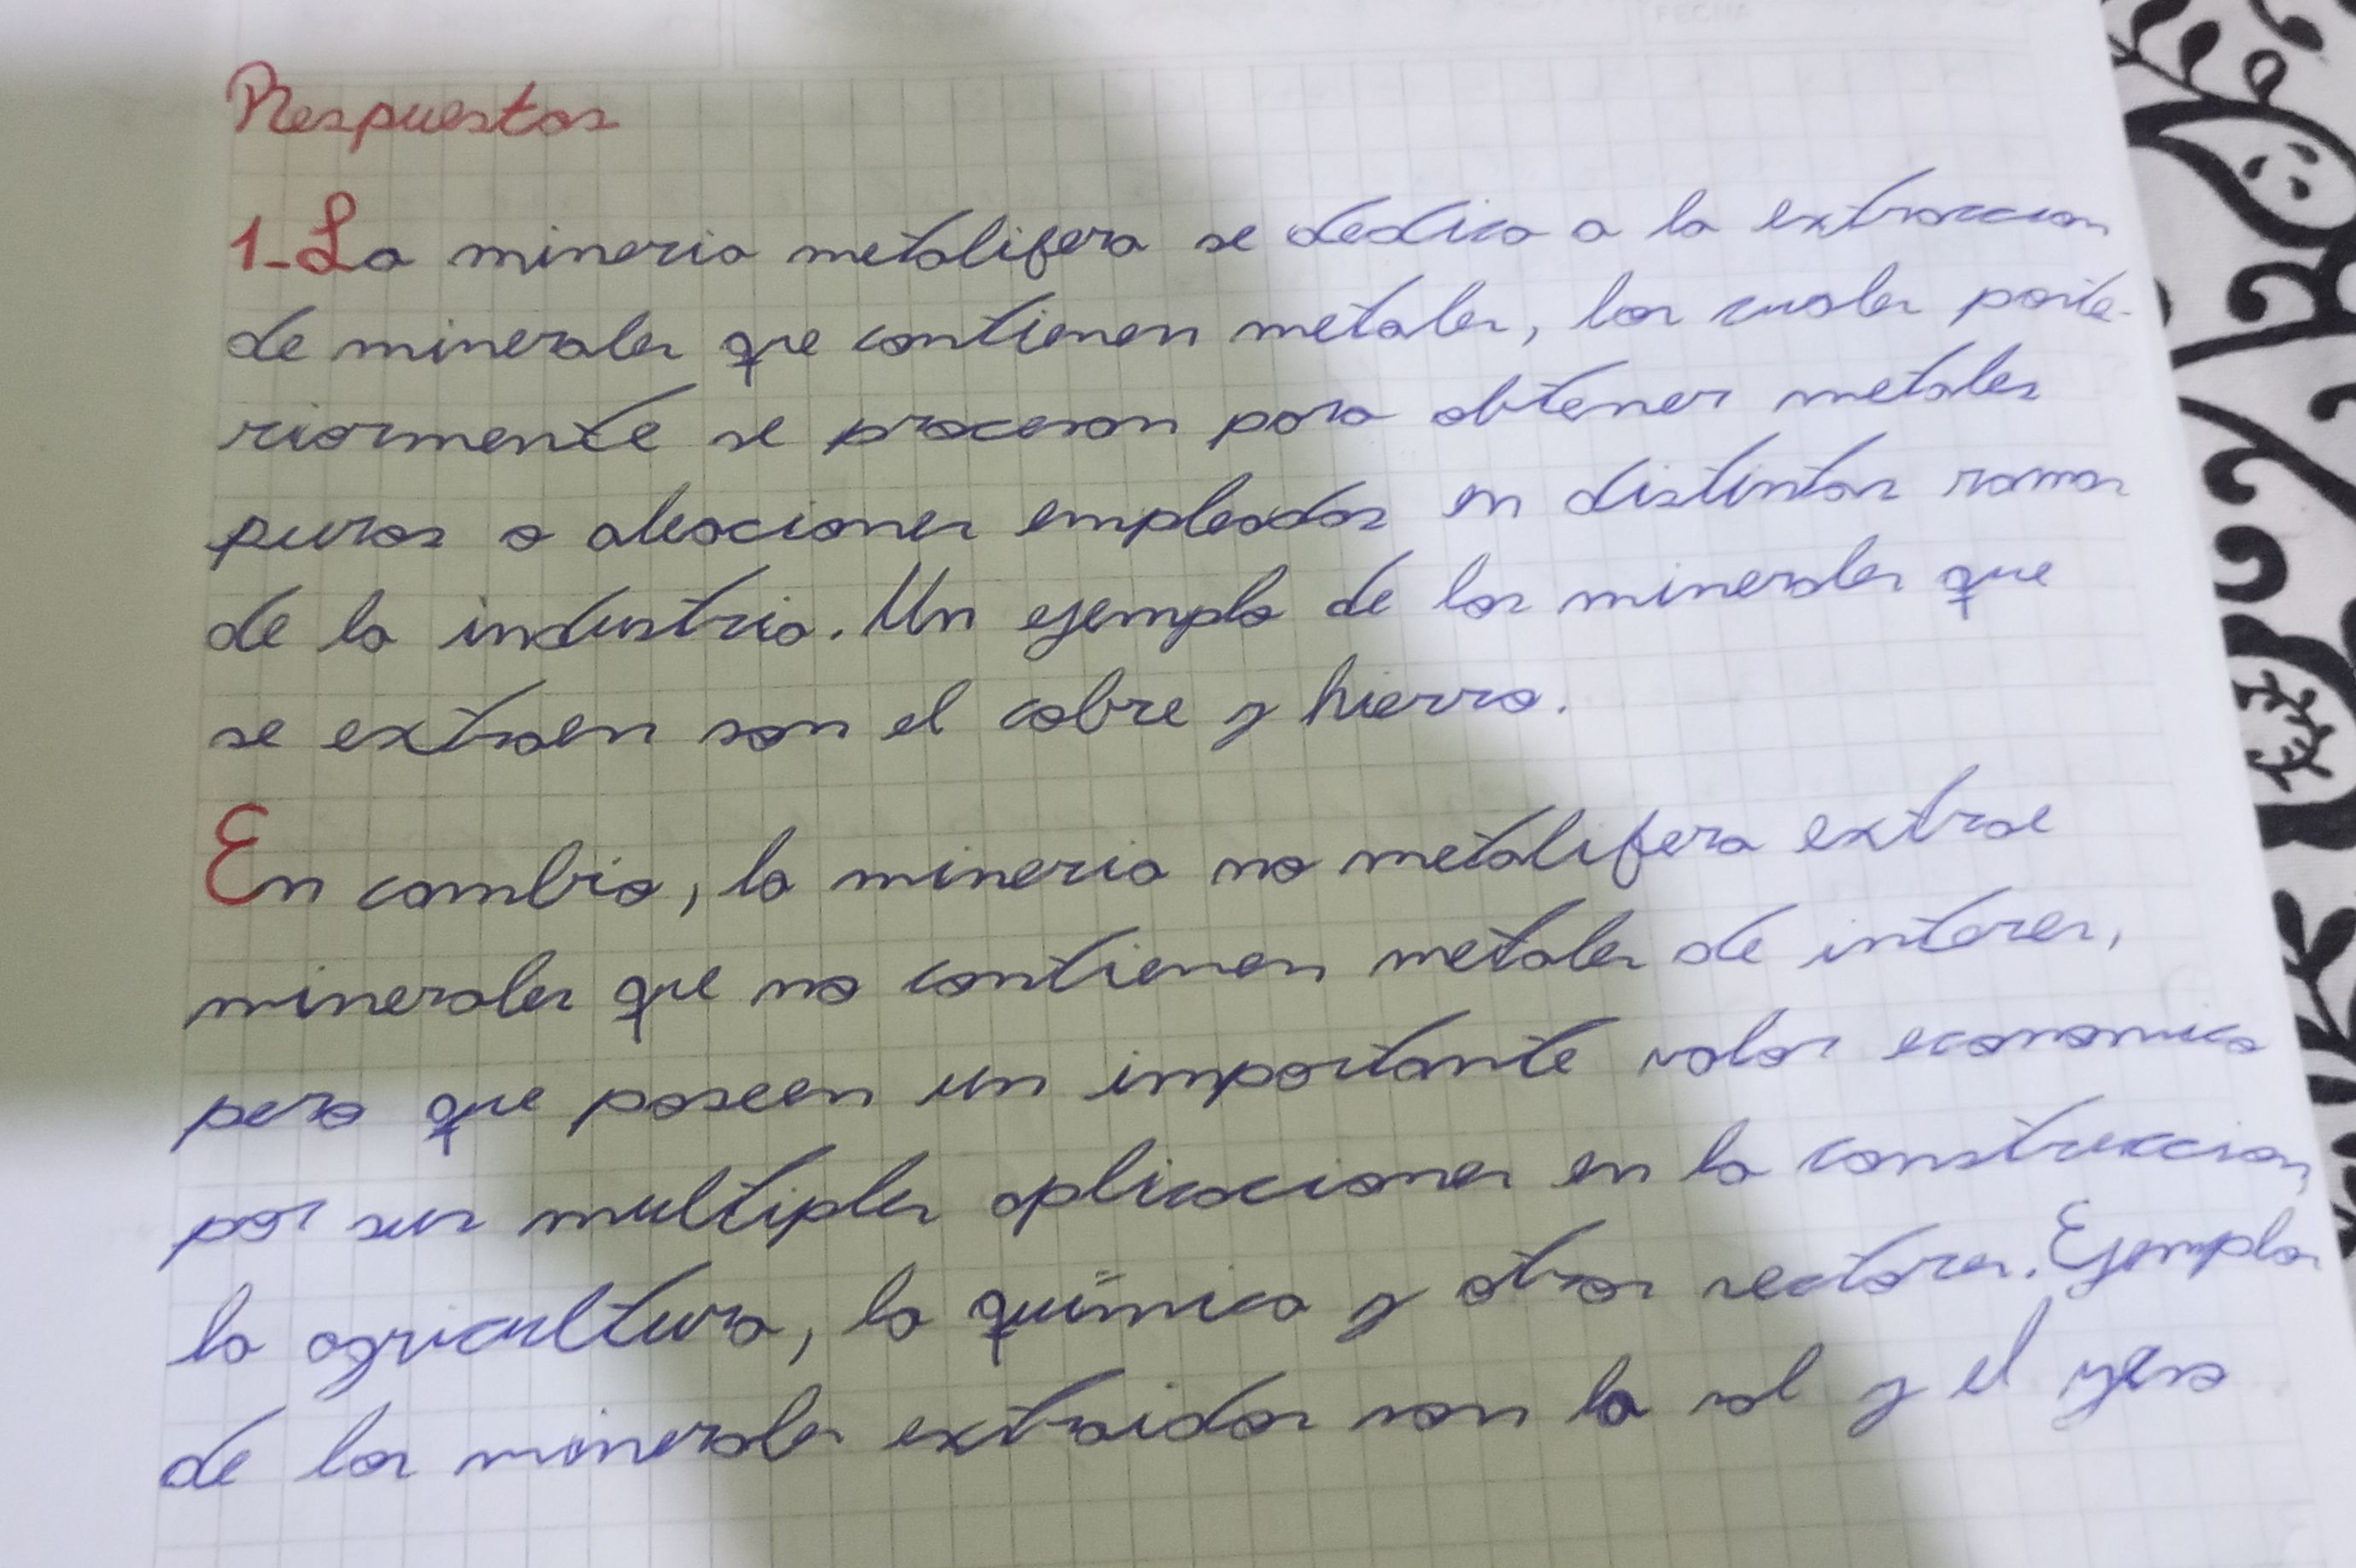 Respuestas
1-La mineria metalifera se dedica a la extraccion
de minerales que contienen metales, los cuales poste-
riormente se procesan para obtener metales
puros o aleaciones empleados en distintas ramas
de la industria. Un ejemplo de los minerales que
se extraen son el cobre y hierro.
En cambio, la mineria no metalifera extrae
minerales que no contienen metales de interes,
pero que poseen un importante valor economico
por sus multiples aplicaciones en la construccion,
la agricultura, la química y otros sectores. Ejemplos
de los minerales extraidos son la sal y el yeso